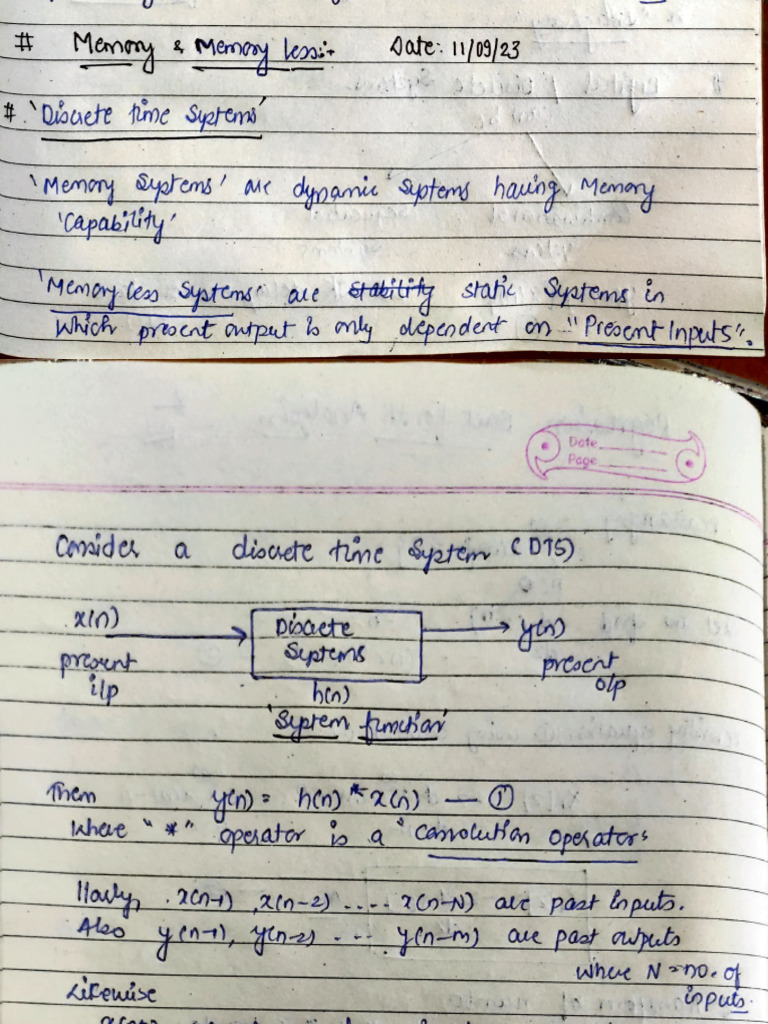 # Memory & Memory less:- Date: 11/09/23
# 'Discrete time Systems'
'Memory Systems' are dynamic Systems having Memory
'Capability'
'Memory less Systems' are stability static Systems in
which present output is only dependent on "Present Inputs".
Date
Page
Consider a discrete time System (DTS)
x(n) Discrete y(n)
present Systems present
i/p h(n) o/p
'System function'
Then y(n) = h(n) * x(n) — ①
Where "*" operator is a "Convolution operator"
lllarly, x(n-1), x(n-2) .... x(n-N) are past inputs.
Also y(n-1), y(n-2) ... y(n-m) are past outputs
where N = no. of
Likewise inputs.